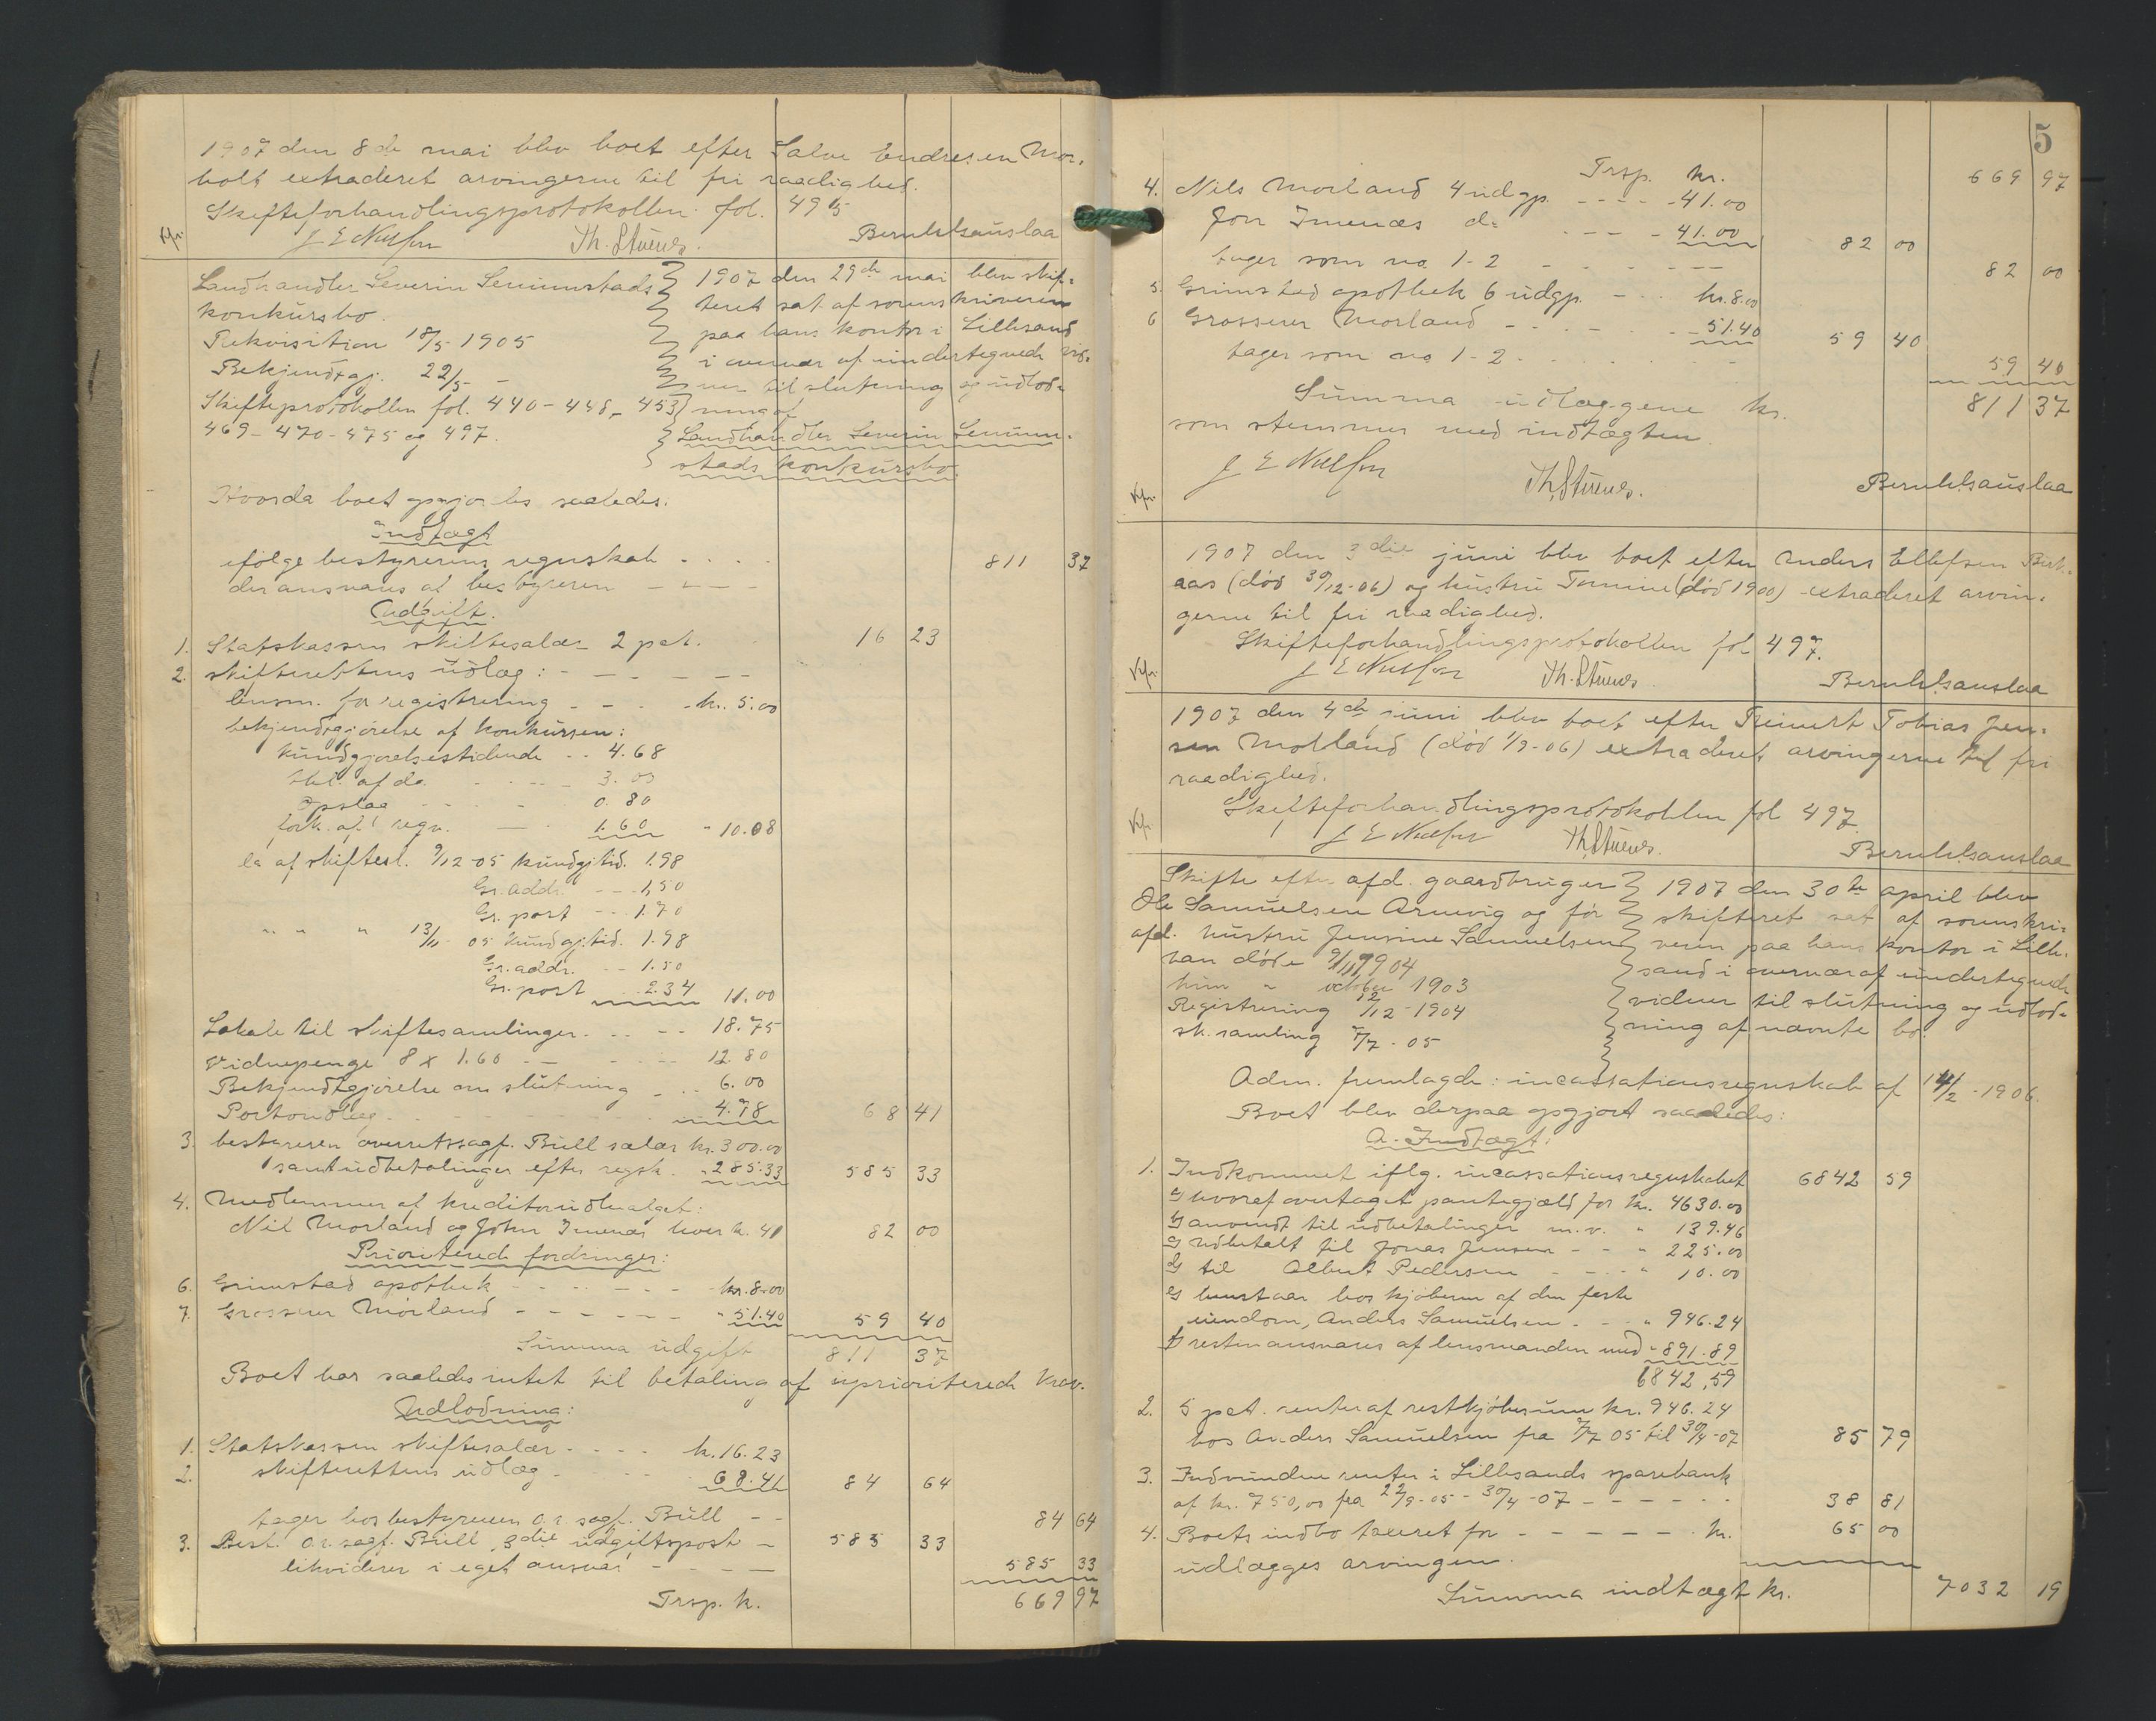 1907 den 8de mai blev boet efter Salve Endresen Mor-
holt extraderet arvingerne til fri raadighed.
Skifteforhandlingsprotokollen fol. 495
Vfr. J E Nielsen Th. Stuevs. Beruldsenslaa
Landhandler Severin Semmstads
konkursbo.
Rekvisition 18/5 1905
Bekjendtgj. 22/5 -
Skifteprotokollen fol. 440 - 448 - 453
469 - 470 - 475 og 497.
1907 den 29de mai blev skif-
teret sat af sorenskriveren
paa hans kontor i Lillesand
i overvær af undertegnede vid-
ner til slutning og udlod-
ning af
Landhandler Severin Semm-
stads konkursbo.
Hvorda boet opgjordes saaledes.
Indtægt
ifølge bestyrerens regnskab . . . . 811 37
der ansvares af bestyreren - - -
Udgift.
1. Statskassen skiftesalær 2 pct. 16 23
2. skifterettens udlæg: - - - - -
lensm. for registrering - - - kr. 5.00
bekjendtgjørelse af konkursen:
Kundgjørelsestidende - - 4.68
Ebl. af do - - - 3.00
Opslag - - - 0.80
fork. af regn. - - 1.60 " 10.08
la af skiftesl. 9/12-05 Kundgj.tid. 1.98
Gr. addr. - - - 1,50
Gr. post - - 1.70
" " " 13/11-05 Kundgj.tid. 1.98
Gr. addr. - - 1.50
Gr. post 2.34 11.00
Lokale til skiftesamlinger. - - - - 18.75
Vidnepenge 8 x 1.60 - - - - - 12.80
Bekjendtgjørelse om slutning - - - 6.00
Portoudlæg - - - - - 4.78 68 41
3. bestyreren overretssagf. Bull salær kr. 300.00
samt udbetalinger efter regsk. " 285.33 585 33
4. Medlemmer af kreditorudvalget:
Nil Morland og John Imenæs hver kr. 41 82 00
Prioriterede fordringer:
6. Grimstad apothek - - - - - kr. 8.00
7. Grosserer Morland - - - - - " 51.40 59 40
Summa udgift 811 37
Boet har saaledes intet til betaling af uprioriterede krav.
Udlodning:
1. Statskassen skiftesalær - - - - kr. 16.23
2. skifterettens udlæg - - - 68.41 84 64
tager hos bestyreren o.r. sagf. Bull - - 84 64
3. Best. o.r. sagf. Bull, 3die udgiftspost - 585 33
likviderer i eget ansvar - - - - 585 33
Trsp. kr. 669 97
5
Trsp. kr. 669 97
4. Nils Morland 4 udgp. - - - - 41.00
Jon Imenæs do - - - - 41.00 82 00
tager som no 1-2 - - - - - - 82 00
5. Grimstad apothek 6 udgp. - - - kr. 8.00
6 Grosserer Morland - - - - - - 51.40 59 40
tager som no 1-2 - - - - 59 40
Summa udlæggene kr. 811 37
som stemmer med indtægten.
Vfr. J E Nielsen Th. Stuevs. Beruldsenslaa
1907 den 3die juni blev boet efter Anders Ellefsen Birk-
aas (død 30/12-06) og hustru Tomine (død 1900) extraderet arvin-
gerne til fri raadighed.
Skifteforhandlingsprotokollen fol 497.
Vfr. J E Nielsen Th. Stuevs. Beruldsenslaa
1907 den 4de juni blev boet efter Reinert Tobias Jen-
sen Molland (død 1/9-06) extraderet arvingerne til fri
raadighed.
Skifteforhandlingsprotokollen fol 497
Vfr. J E Nielsen Th. Stuevs. Beruldsenslaa
Skifte efter afd. gaardbruger
Ole Samuelsen Arnevig og før
afd. hustru Jensine Samuelsen
han døde 9/11 1904
hun " october 1903
Registrering 12/12 - 1904
sk. samling 7/7 - 05
1907 den 30te april blev
skifteret sat af sorenskri-
veren paa hans kontor i Lille-
sand i overvær af undertegnede
vidner til slutning og udlod-
ning af nævnte bo.
Adm. fremlagde: incassationsregnskab af 14/2 - 1906.
Boet blev derpaa opgjort saaledes:
A. Indtægt:
1. Indkommet iflg. incassationsregnskabet 6842 59
hvoraf overtaget pantegjæld for kr. 4630.00
anvendt til udbetalinger m.v. " 139.46
Udbetalt til Jonas Jensen - - " 225.00
til Albert Pedersen - - - " 10.00
henstaar hos kjøberen af den faste
eiendom, Anders Samuelsen - - " 946.24
resten ansvares af lensmanden med " 891.89
6842,59
2. 5 pct. renter af restkjøbesum kr. 946.24
hos Anders Samuelsen fra 7/7 05 til 30/4-07 85 79
3. Indvundne renter i Lillesands sparebank
af kr. 750,00 fra 22/9-05 - 30/4-07 - - - - - - 38 81
4. Boets indbo taxeret for - - - - - kr. 65 00
udlægges arvingen.
Summa indtægt kr. 7032 19